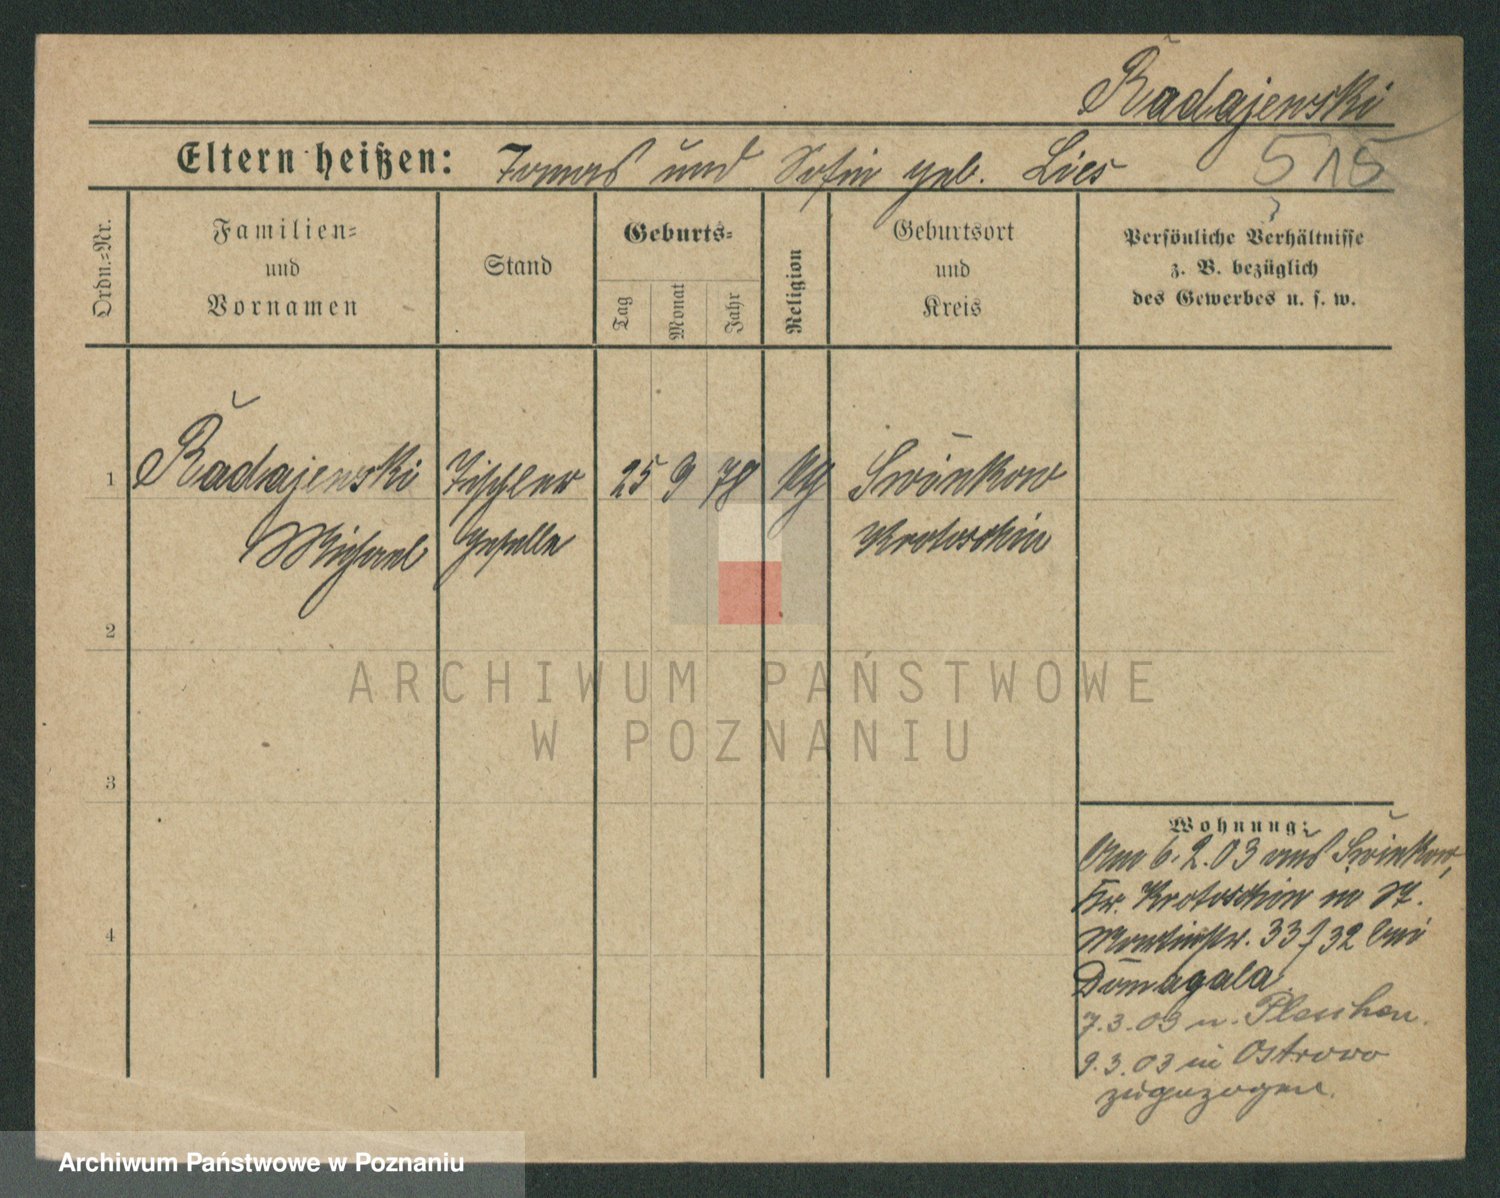 Radajewski
515
Eltern heißen: Tomas und Sofia geb. Lies
Ordn.-Nr.
Familien-
und
Vornamen
Stand
Geburts-
Tag
Monat
Jahr
Religion
Geburtsort
und
Kreis
Persönliche Verhältnisse
z. B. bezüglich
des Gewerbes u. s. w.
1
Radajewski
Michael
Tischler
geselle
25 9 78
Swinkow
Krotoschin
2
3
4
Wohnung:
Am 6.2.03 aus Swinkow,
Kr. Krotoschin in St.
Martinstr. 33 / 32 bei
Domagala
7.3.03 n. Pleschen.
9.3.03 in Ostrowo
zugezogen.
ARCHIWUM PAŃSTWOWE
W POZNANIU
Archiwum Państwowe w Poznaniu